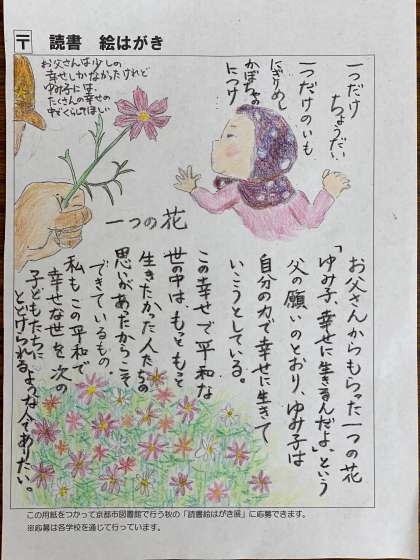 〒 読書 絵はがき
お父さんは少しの
幸せしかなかったけれど
ゆみ子には、
たくさんの幸せの
中でくらしてほしい
一つだけ
ちょうだい
一つだけのいも
にぎりめし
かぼちゃの
につけ
一つの花
お父さんからもらった一つの花
「ゆみ子、幸せに生きるんだよ。」という
父の願いのとおり、ゆみ子は
自分の力で幸せに生きて
いこうとしている。
この幸せで平和な
世の中は、もっともっと
生きたかった人たちの
思いがあったからこそ
できているもの。
私もこの平和で
幸せな世を次の
子どもたちに
とどけられるような人でありたい。
この用紙をつかって京都市図書館で行う秋の「読書絵はがき展」に応募できます。
※応募は各学校を通じて行っています。